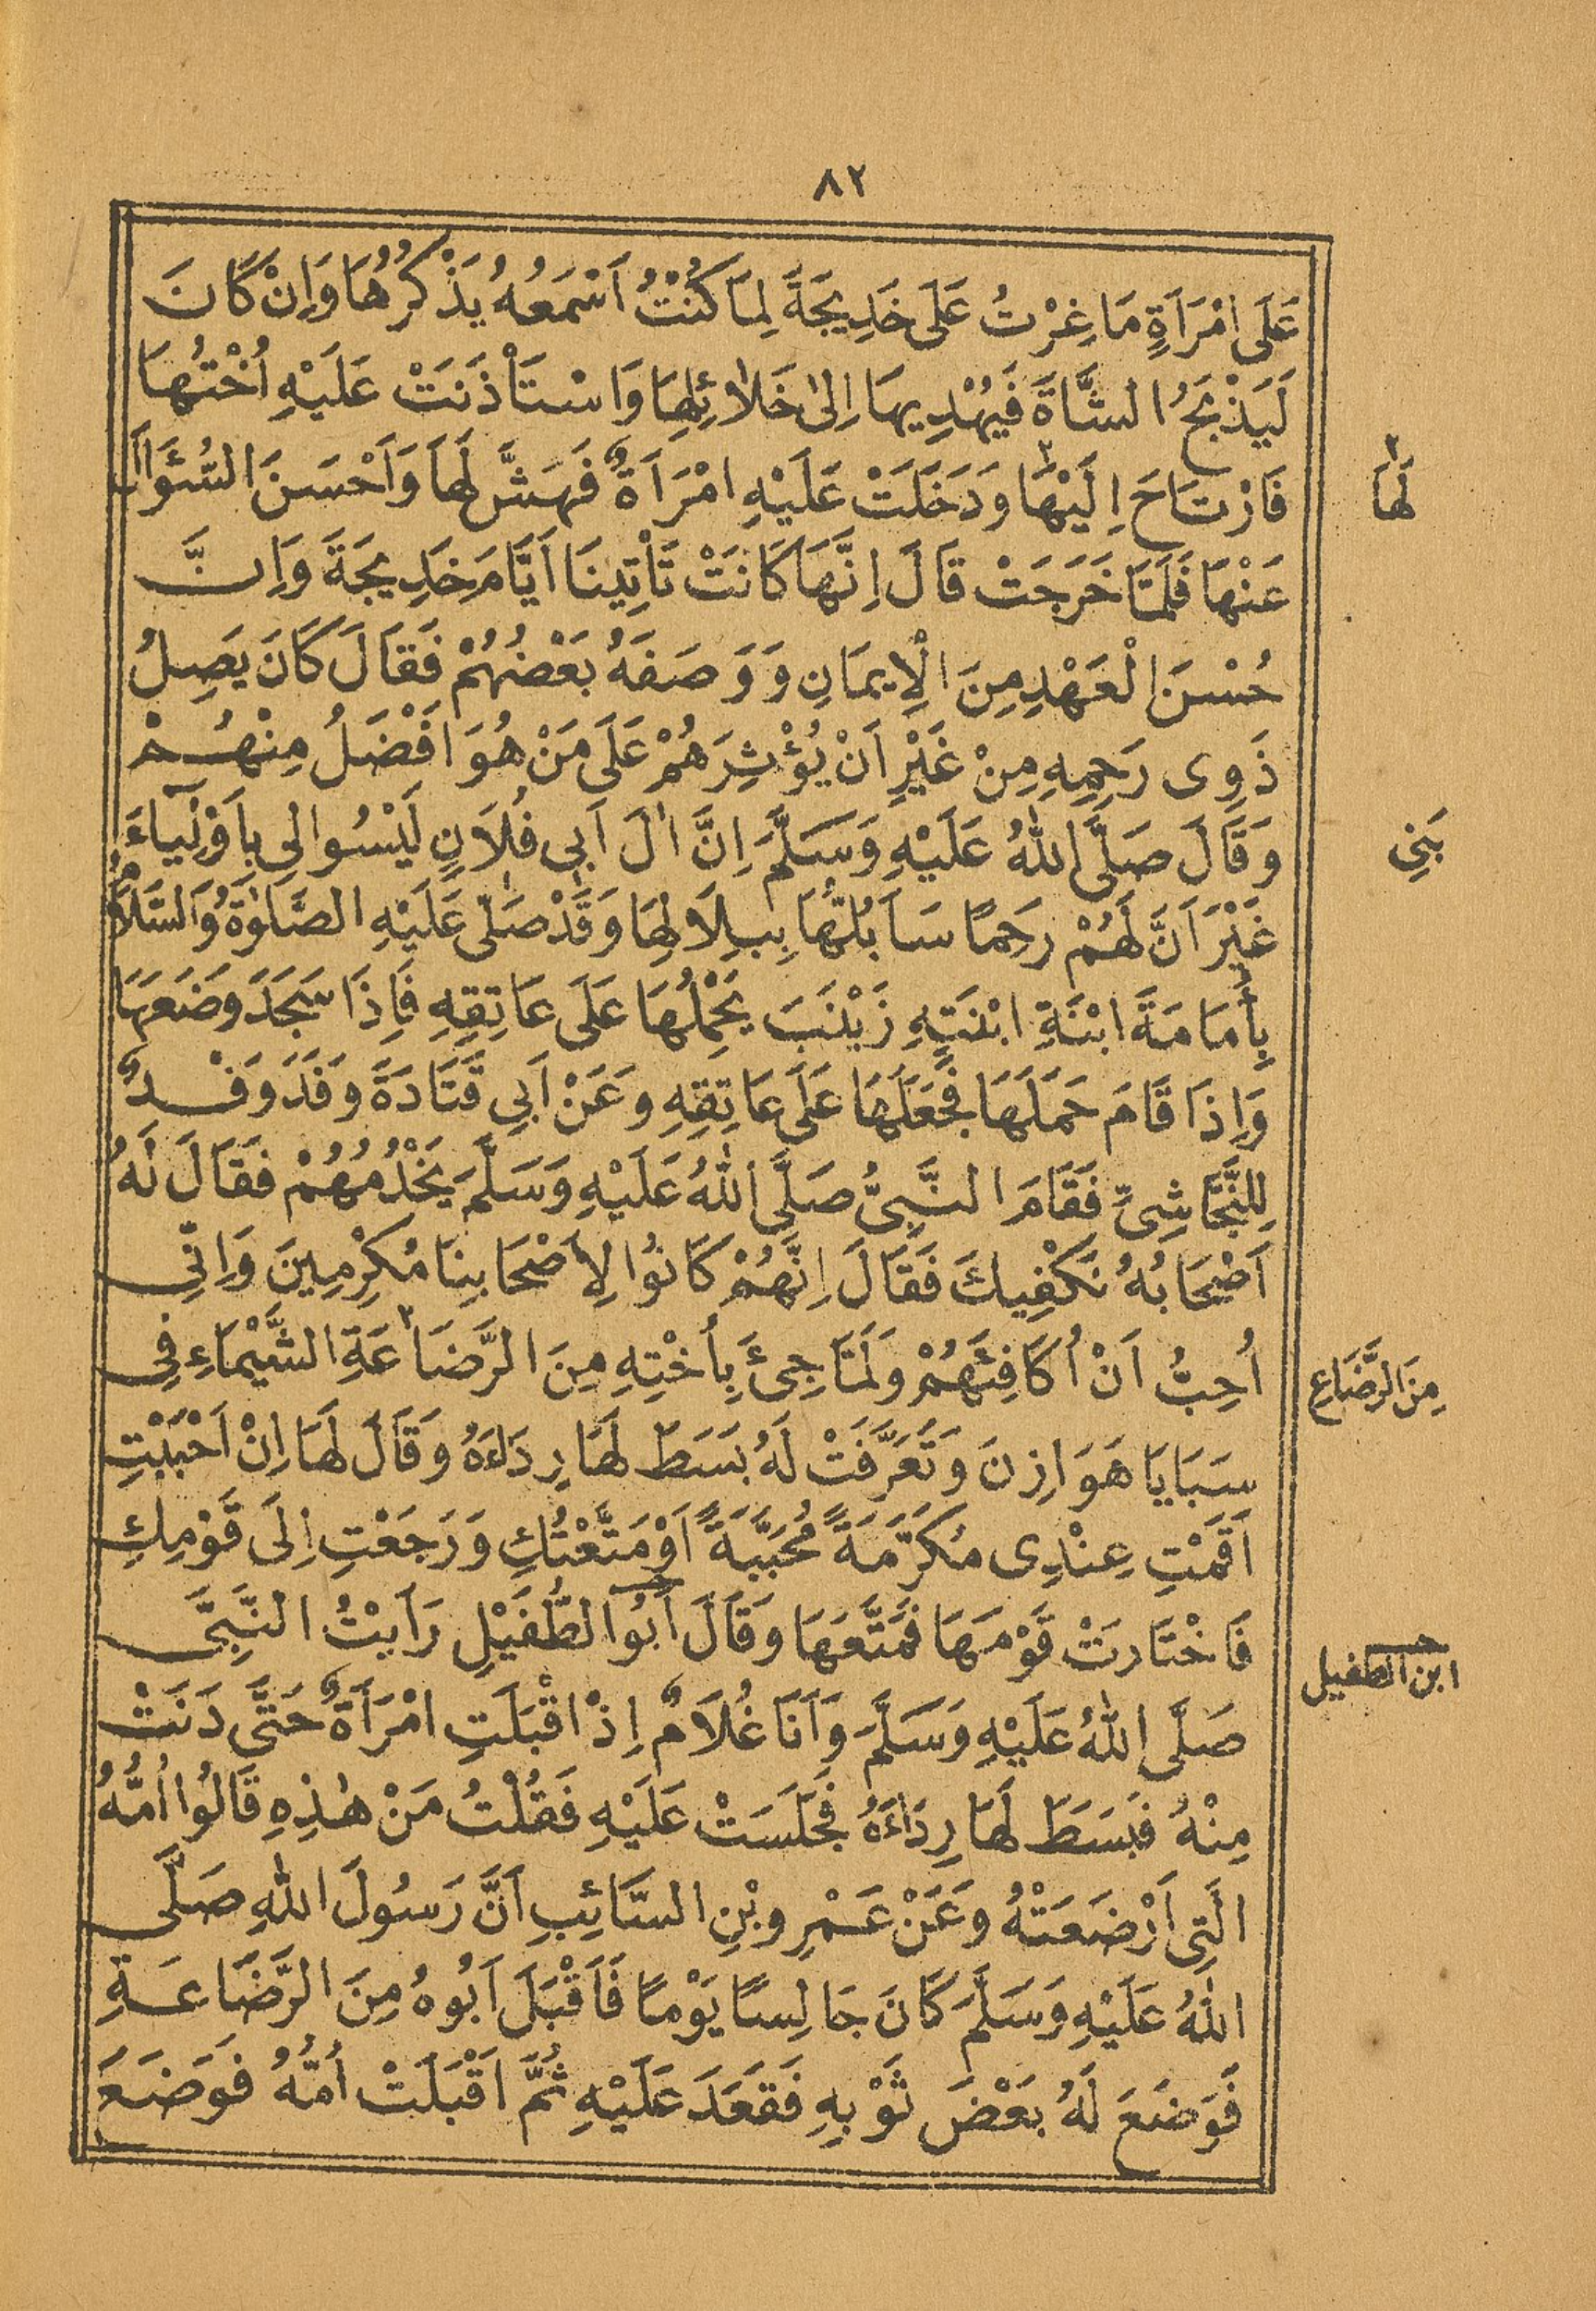 ٨٢
عَلَى امْرَأَةٍ مَا غِرْتُ عَلَى خَدِيجَةَ لِمَا كُنْتُ اَسْمَعُهُ يَذْكُرُهَا وَاِنْ كَانَ
لَيَذْبَحُ الشَّاةَ فَيُهْدِيهَا اِلىٰ خَلَائِلِهَا وَاسْتَأْذَنَتْ عَلَيْهِ اُخْتُهَا
فَارْتَاحَ اِلَيْهَا وَدَخَلَتْ عَلَيْهِ امْرَاَةٌ فَهَشَّ لَهَا وَاَحْسَنَ السُّؤَالَ
لَهَا
عَنْهَا فَلَمَّا خَرَجَتْ قَالَ اِنَّهَا كَانَتْ تَأْتِينَا اَيَّامَ خَدِيجَةَ وَاِنَّ
حُسْنَ الْعَهْدِ مِنَ الْاِيمَانِ وَوَصَفَهُ بَعْضُهُمْ فَقَالَ كَانَ يَصِلُ
ذَوِى رَحِمِهِ مِنْ غَيْرِ اَنْ يُؤْثِرَهُمْ عَلَى مَنْ هُوَ اَفْضَلُ مِنْهُمْ
وَقَالَ صَلَّى اللهُ عَلَيْهِ وَسَلَّمَ اِنَّ اٰلَ اَبِى فُلَانٍ لَيْسُوا لِي بِاَوْلِيَآءَ
بَنِي
غَيْرَ اَنَّ لَهُمْ رَحِمًا سَاَبُلُّهَا بِبِلَالِهَا وَقَدْ صَلَّى عَلَيْهِ الصَّلٰوةُ وَالسَّلَامُ
بِأُمَامَةَ ابْنَةِ ابْنَتِهِ زَيْنَبَ يَحْمِلُهَا عَلَى عَاتِقِهِ فَاِذَا سَجَدَ وَضَعَهَا
وَاِذَا قَامَ حَمَلَهَا فَجَعَلَهَا عَلَى عَاتِقِهِ وَعَنْ اَبِى قَتَادَةَ وَفَدَ وَفْدٌ
لِلنَّجَاشِىِّ فَقَامَ النَّبِىُّ صَلَّى اللهُ عَلَيْهِ وَسَلَّمَ يَخْدُمُهُمْ فَقَالَ لَهُ
اَصْحَابُهُ نَكْفِيكَ فَقَالَ اِنَّهُمْ كَانُوا لِاَصْحَابِنَا مُكْرِمِينَ وَاِنِّى
اُحِبُّ اَنْ اُكَافِئَهُمْ وَلَمَّا جِئَ بِأُخْتِهِ مِنَ الرَّضَاعَةِ الشَّيْمَاءِ فِى
مِنَ الرَّضَاعِ
سَبَايَا هَوَازِنَ وَتَعَرَّفَتْ لَهُ بَسَطَ لَهَا رِدَاءَهُ وَقَالَ لَهَا اِنْ اَحْبَبْتِ
اَقَمْتِ عِنْدِى مُكَرَّمَةً مُحَبَّبَةً اَوْ مَتَّعْتُكِ وَرَجَعْتِ اِلَى قَوْمِكِ
فَاخْتَارَتْ قَوْمَهَا فَمَتَّعَهَا وَقَالَ اَبُو الطُّفَيْلِ رَاَيْتُ النَّبِىَّ
ابن الطفيل
صَلَّى اللهُ عَلَيْهِ وَسَلَّمَ وَاَنَا غُلَامٌ اِذْ اَقْبَلَتِ امْرَأَةٌ حَتَّى دَنَتْ
مِنْهُ فَبَسَطَ لَهَا رِدَاءَهُ فَجَلَسَتْ عَلَيْهِ فَقُلْتُ مَنْ هٰذِهِ قَالُوا اُمُّهُ
الَّتِى اَرْضَعَتْهُ وَعَنْ عَمْرِو بْنِ السَّائِبِ اَنَّ رَسُولَ اللهِ صَلَّى
اللهُ عَلَيْهِ وَسَلَّمَ كَانَ جَالِسًا يَوْمًا فَاَقْبَلَ اَبُوهُ مِنَ الرَّضَاعَةِ
فَوَضَعَ لَهُ بَعْضَ ثَوْبِهِ فَقَعَدَ عَلَيْهِ ثُمَّ اَقْبَلَتْ اُمُّهُ فَوَضَعَ